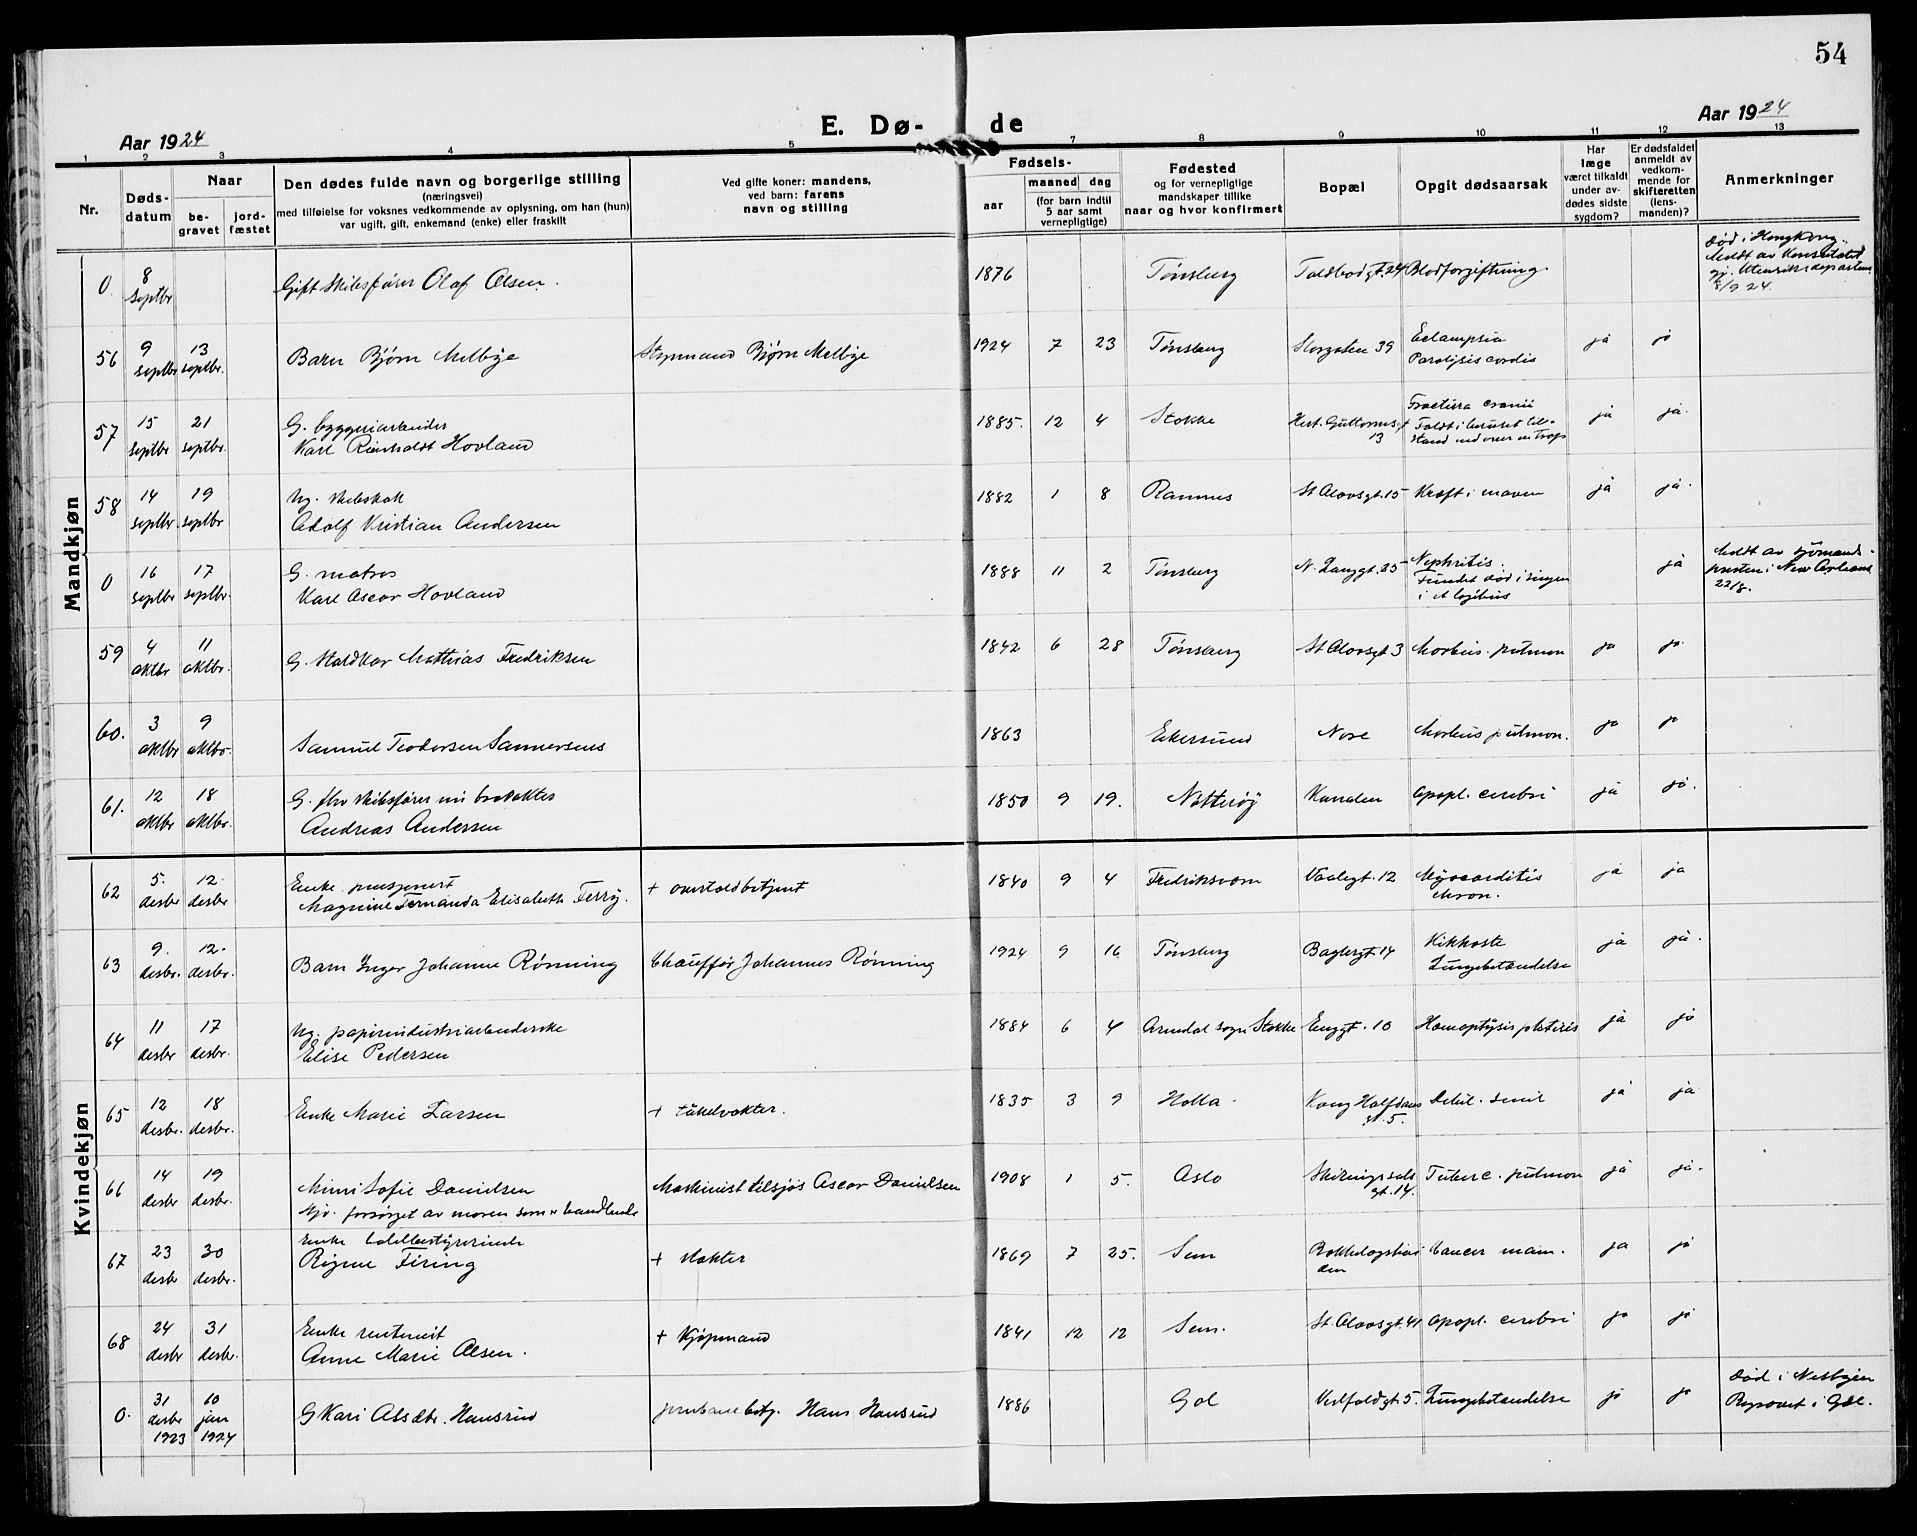 54
Aar 1924
E. Dø-
de
Aar 1924
1 2 3 4 5 7 8 9 10 11 12 13
Nr.
Døds-
datum
Naar
be-
gravet
jord-
fæstet
Den dødes fulde navn og borgerlige stilling
(næringsvei)
med tilføielse for voksnes vedkommende av oplysning, om han (hun)
var ugift, gift, enkemand (enke) eller fraskilt
Ved gifte koner: mandens,
ved barn: farens
navn og stilling
Fødsels-
aar
maaned dag
(for barn indtil
5 aar samt
vernepligtige)
Fødested
og for vernepligtige
mandskaper tillike
naar og hvor konfirmert
Bopæl
Opgit dødsaarsak
Har
læge
været tilkaldt
under av-
dødes sidste
sygdom?
Er dødsfaldet
anmeldt av
vedkom-
mende for
skifteretten
(lens-
manden)?
Anmerkninger
Mandkjøn
0 8 septbr Gift Skibsfører Olaf Olsen. 1876 Tønsberg Toldbodgt. 24 Blodforgiftning.
Død i Hongkong.
Meldt av Konsulatet
gj. Utenriksdepartem
8/9 24.
56 9 septbr 13 septbr. Barn Bjørn Melbye Styrmand Bjørn Melbye 1924 7 23 Tønsberg Storgaten 39 Eclampsia
Paralysis cordis ja ja
57 15 septbr 21 septbr. G.
Karl Reinholdt Hovland 1885. 12 4 Stokke Hert. Guttormsgt
13 Fractura cranii
Faldt i beruset til-
stand ned over en trap ja ja.
58 14 septbr. 19 septbr Ug. skibskok
Adolf Kristian Andersen 1882 1 8 Ramnes St. Olavsgt. 15 Kræft i maven ja ja.
0 16 septbr 17 septbr. G. matros
Karl Oscar Hovland 1888 11 2 Tønsberg N. Langgt. 25 Nephritis.
Fundet død i sengen
i et logihus ja
Meldt av sjømands-
presten i New Orleans
22/8.
59 4 oktbr 11 oktbr. G. Staldkar Mathias Fredriksen 1842 6 28 Tønsberg St. Olavsgt 3 Morbus. pulmon ja ja.
60. 3 oktbr 9 oktbr. Samuel Teodorsen Sannersnes 1863 Ekersund Nore Morbus pulmon. ja ja
61. 12 oktbr 18 oktbr. G. fhv skibsfører nu brovakter
Andreas Andersen 1850 9 19. Nøtterøy Kanalen Apopl. cerebri ja ja.
Kvindekjøn
62 5. desbr 12. desbr Enke. pensjonert
Magnine Fernanda Elisabeth Ferry. + overtoldbetjent 1840 9 4 Fredriksværn Vaalegt. 12 Myocarditis
chron. ja ja
63 9. desbr. 12. desbr. Barn Inger Johanne Rønning Chauffør Johannes Rønning 1924 9 16 Tønsberg Baglergt. 14 Kikhoste
Lungebetændelse ja ja.
64 11 desbr 17 desbr. Ug. papirindustriarbeiderske
Elise Pedersen 1884 6 4 Arendal sogn Stokke Enggt. 10 Hæmoptysis phtisis ja ja
65 12 desbr. 18 desbr. Enke Marie Larsen + takelvakter. 1835 3 9 Holla. Kong Halfdans
gt. 5. Debil. senil ja ja
66 14 desbr 19 desbr. Mimi Sofie Danielsen
Ug. forsørget av moren som er handlende Maskinist tilsjøs Oscar Danielsen 1908 1 5. Oslo Skiringssals
gt. 14. Tuberc. pulmon ja ja.
67 23 desbr 30 desbr. Enke hotelbestyrerinde
Rigne Firing + slakter 1869 7 25. Sem Cancer mam. ja ja
68 24 desbr 31 desbr. Enke rentenist
Anne Marie Olsen. + Kjøpmand 1841 12 12 Sem. St. Olavsgt. 41 Apopl. cerebri ja ja
0. 31 desbr 1923 10 jan 1924 G Kari Olsdtr. Hansrud jernbanebetj. Hans Hansrud 1886 Gol Vestfoldgt. 5. Lungebetændelse ja ja
Død i Nesbyen
Begravet i Gol.